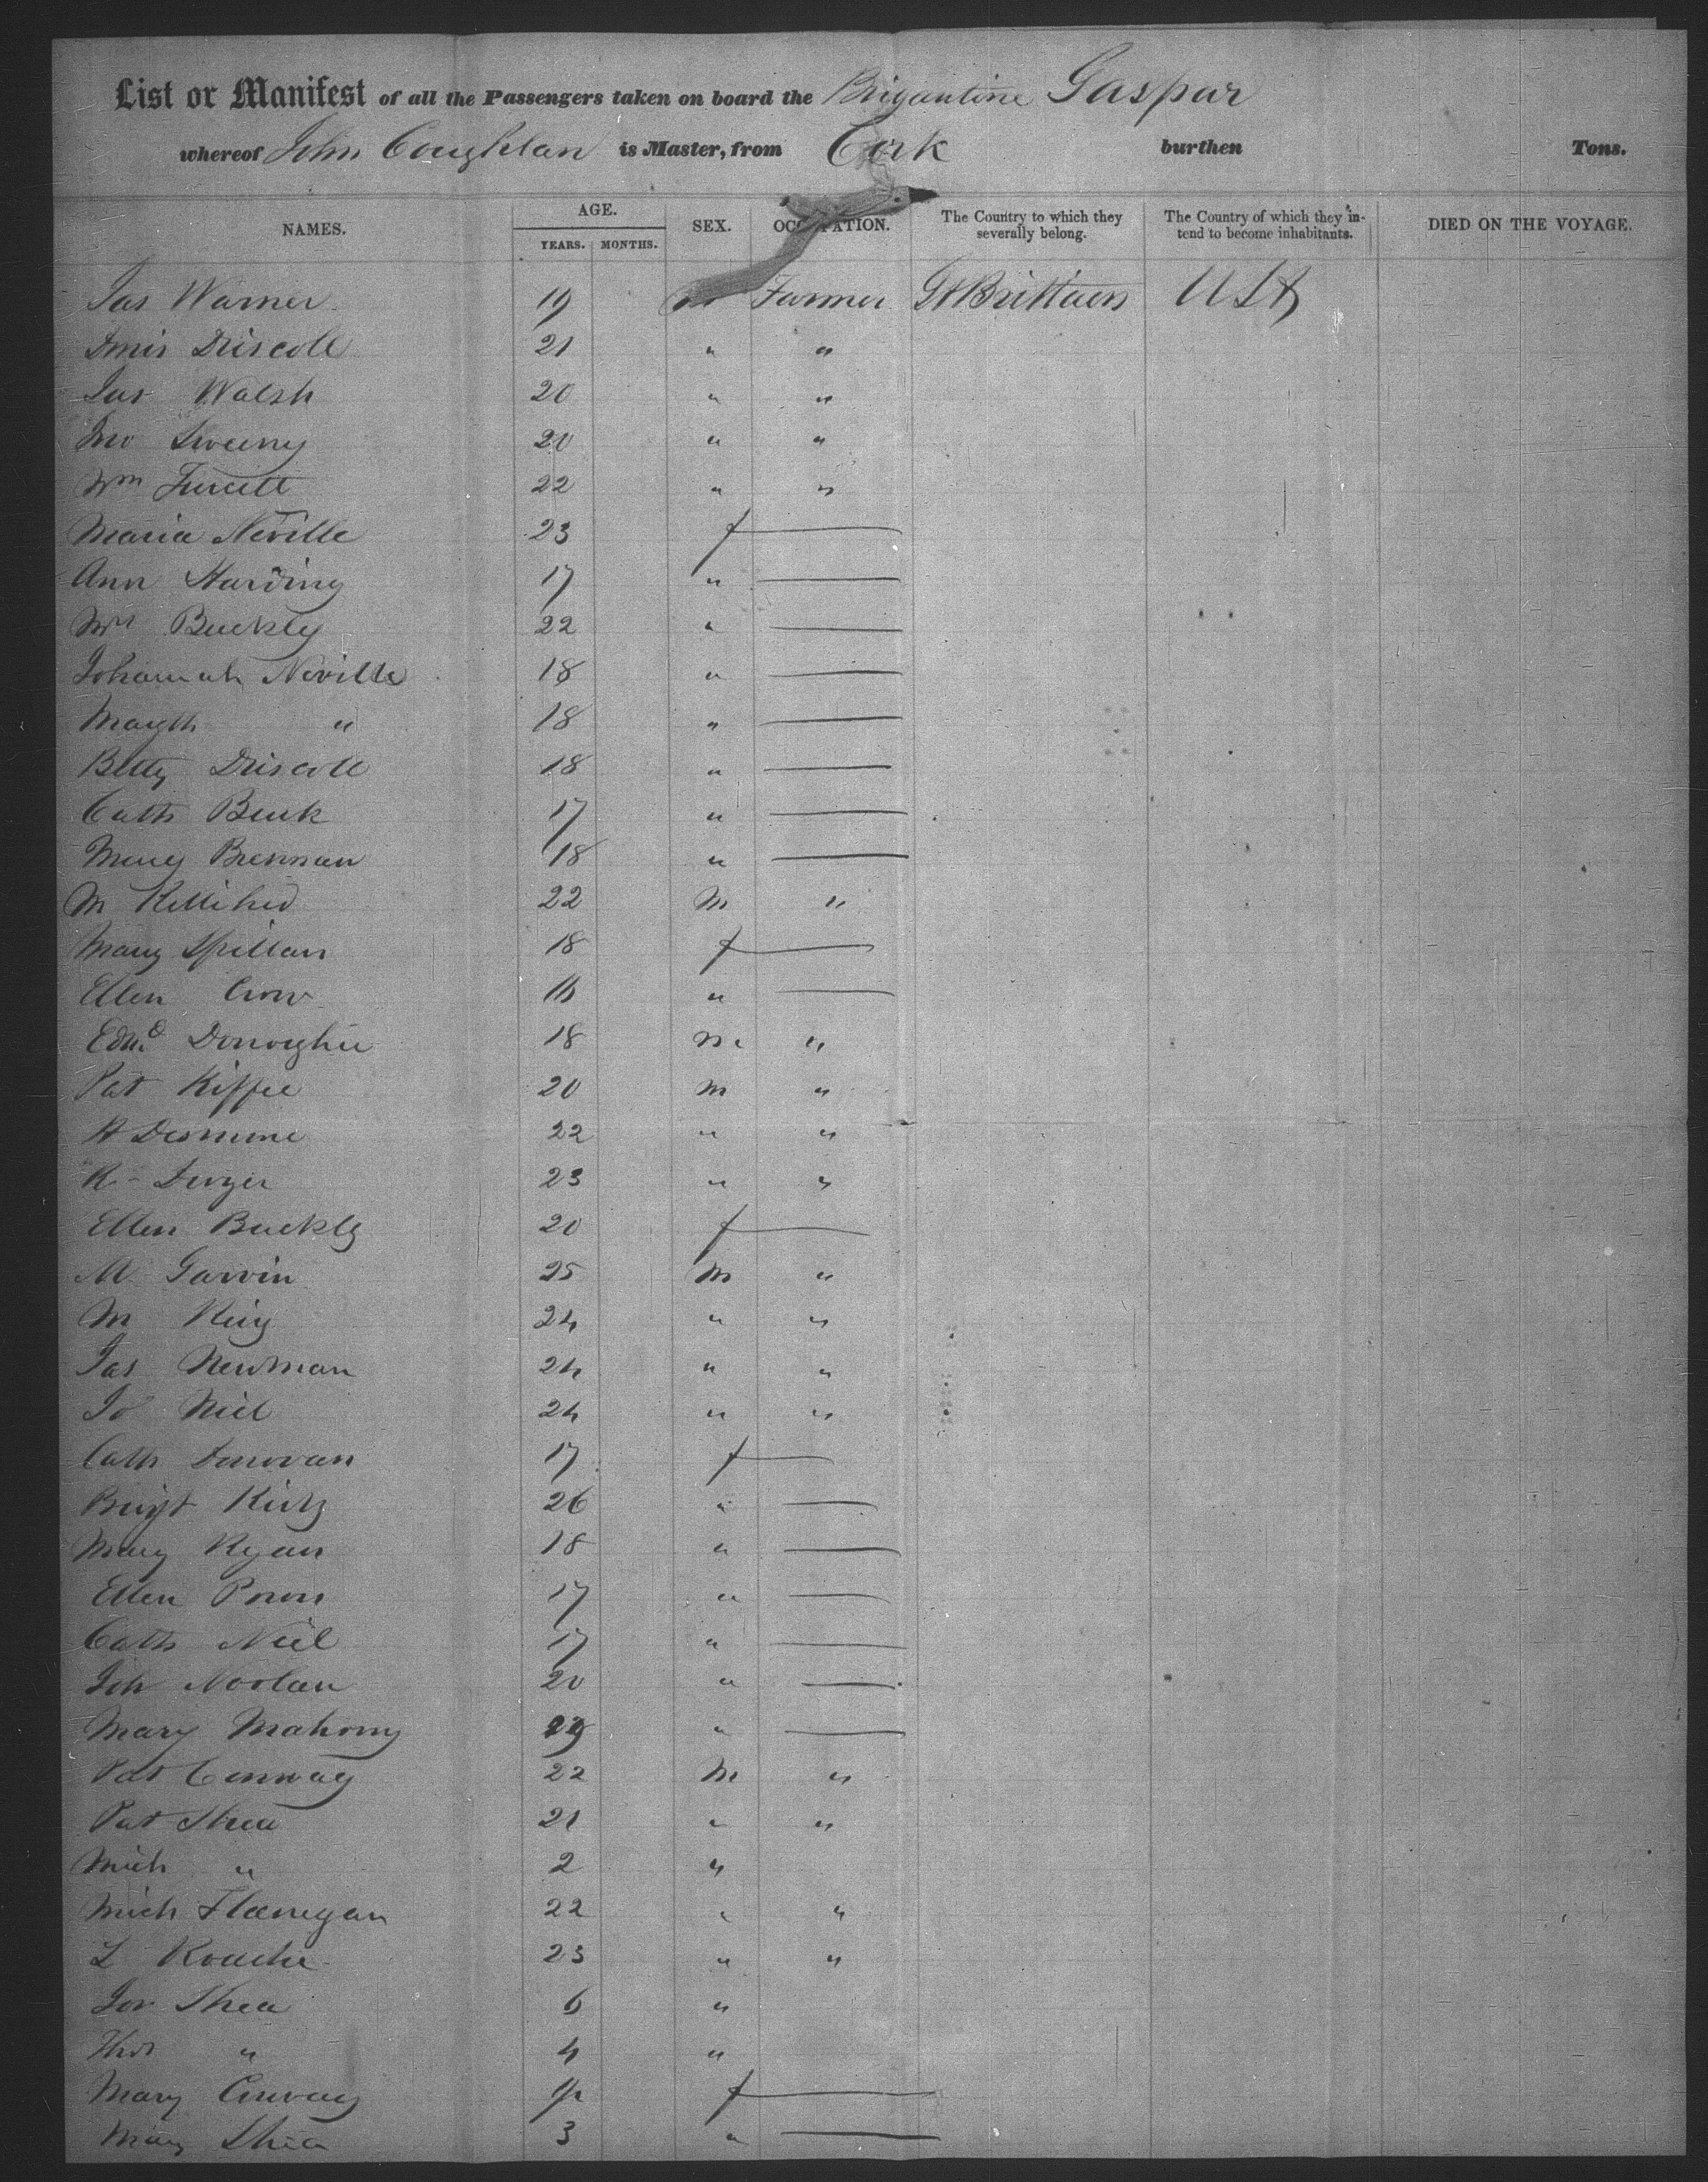 List or Manifest of all the Passengers taken on board the Brigantine Gaspar
whereof John Coughlan is Master, from Cork burthen Tons.
NAMES. AGE. YEARS. MONTHS. SEX. OCCUPATION. The Country to which they severally belong. The Country of which they intend to become inhabitants. DIED ON THE VOYAGE.
Jas Warner 19 m Farmer Gt Brittain USA
Dnis Driscoll 21 " "
Jas Walsh 20 " "
Jno Sweeny 20 " "
Wm 22 " "
Maria Neville 23 f —
Ann Harding 17 " —
Buckly 22 " —
Johannah Neville 18 " —
Margth " 18 " —
Betty Driscoll 18 " —
Cath Burk 17 " —
Mary Brennan 18 " —
M Kelliher 22 M "
Mary Spillan 18 f —
Ellen Crow 16 " —
Edmd Donoghue 18 m "
Pat Kiffee 20 m "
22 " "
R 23 " "
Ellen Buckly 20 f —
M Garvin 25 M "
M King 24 " "
Jas Newman 24 " "
Jo Niel 24 " "
Cath Donovan 17 f —
Brigt 26 " —
Mary Ryan 18 " —
Ellen 17 " —
Cath Niel 17 " —
Joh Noolan 20 " —
Mary Mahony " —
Pat Conway 22 M "
Pat Shea 21 " "
Mich " 2 "
Mich Flanegan 22 " "
L Rouche 23 " "
Shea 6 "
Thos " 4 "
Mary Conway f —
Mary Shea 3 " —